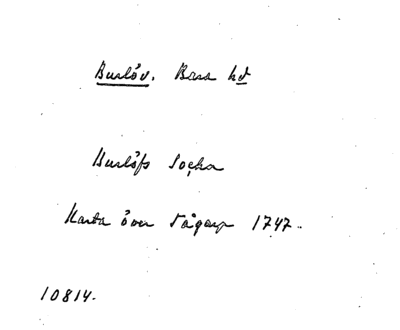 Burlöv. Bara hd
Burlöfs Sochn
Karta över Tågarp 1747.
10814.